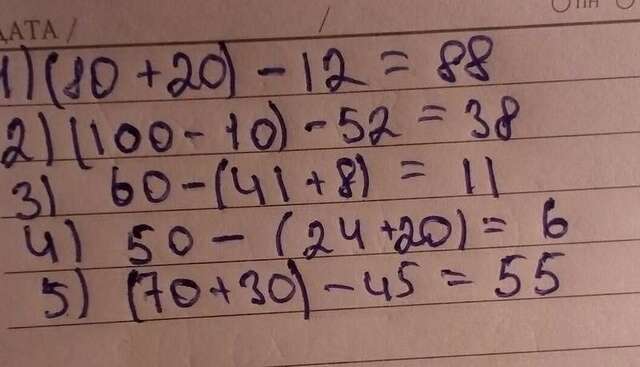 ДАТА /
/
ПН
1) (80 + 20) - 12 = 88
2) (100 - 10) - 52 = 38
3) 60 - (41 + 8) = 11
4) 50 - (24 + 20) = 6
5) (70 + 30) - 45 = 55